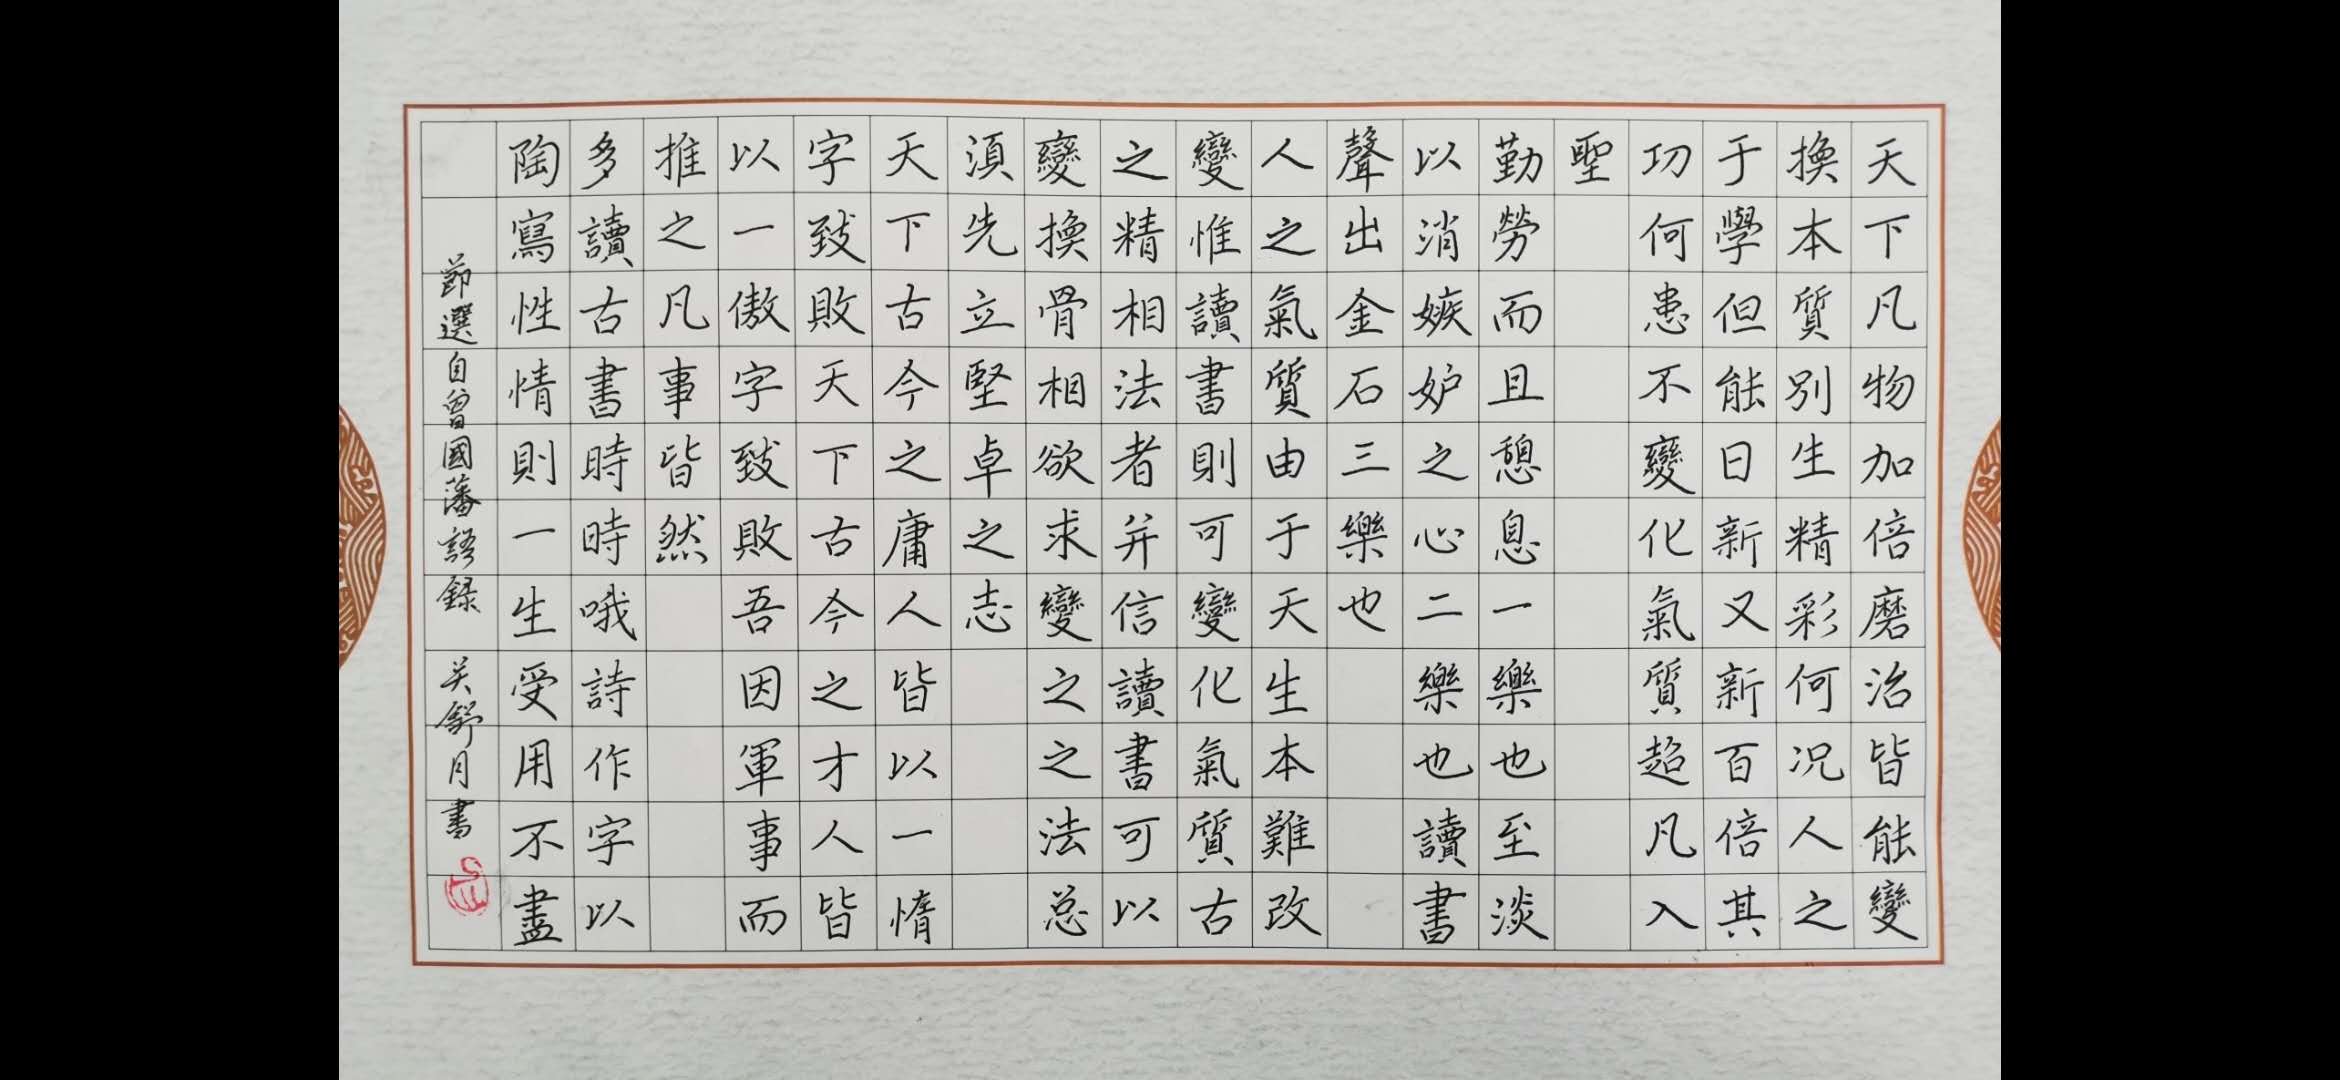 天下凡物加倍磨治皆能變
換本質別生精彩何况人之
于學但能日新又新百倍其
功何患不變化氣質超凡入
聖
勤勞而且憩息一樂也至淡
以消嫉妒之心二樂也讀書
聲出金石三樂也
人之氣質由于天生本難改
變惟讀書則可變化氣質古
之精相法者并信讀書可以
變換骨相欲求變之之法总
須先立堅卓之志
天下古今之庸人皆以一惰
字致敗天下古今之才人皆
以一傲字致敗吾因軍事而
推之凡事皆然
多讀古書時時哦詩作字以
陶寫性情則一生受用不盡
節選自曾國藩語録 关舒月書